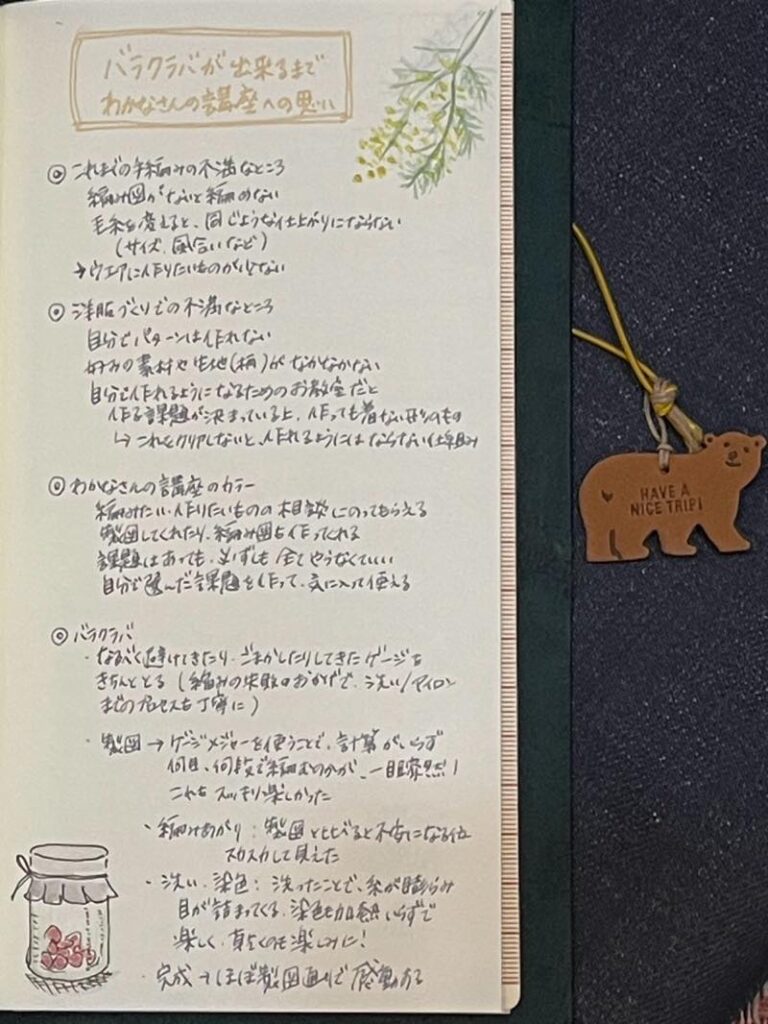 バラクラバが出来るまで
わかなさんの講座への思い
◎ これまでの手編みの不満なところ
編み図がないと編めない
毛糸を変えると、同じような仕上がりにならない
(サイズ、風合いなど)
→ウエアに作りたいものが少ない
◎ 洋服づくりでの不満なところ
自分でパターンは作れない
好みの素材や生地(柄)がなかなかない
自分で作れるようになるためのお教室だと
作る課題が決まっている上、作っても着ない形のもの
↳ これをクリアしないと、作れるようにはならない仕組み
◎ わかなさんの講座のカラー
編みたい・作りたいものの相談にのってもらえる
製図してくれたり、編み図を作ってくれる
課題はあっても、必ずしも全てやらなくていい
自分で選んだ課題を作って、気に入って使える
◎ バラクラバ
・なるべく避けてきたり・ごまかしたりしてきたゲージを
きちんととる (編みの失敗のおかげで、洗い/アイロン
までのプロセスも丁寧に)
・製図 → ゲージメジャーを使うことで、計算がいらず
何目、何段で編むのかが、一目瞭然!
これも スッキリ楽しかった
・編みあがり : 製図と比べると不安になる位
スカスカして見えた
・洗い・染色 : 洗ったことで、糸が膨らみ
目が詰まってくる。染色も加熱いらずで
楽しく、真冬の楽しみに!
・完成 → ほぼ製図通りで 感動ある
HAVE A
NICE TRIP!